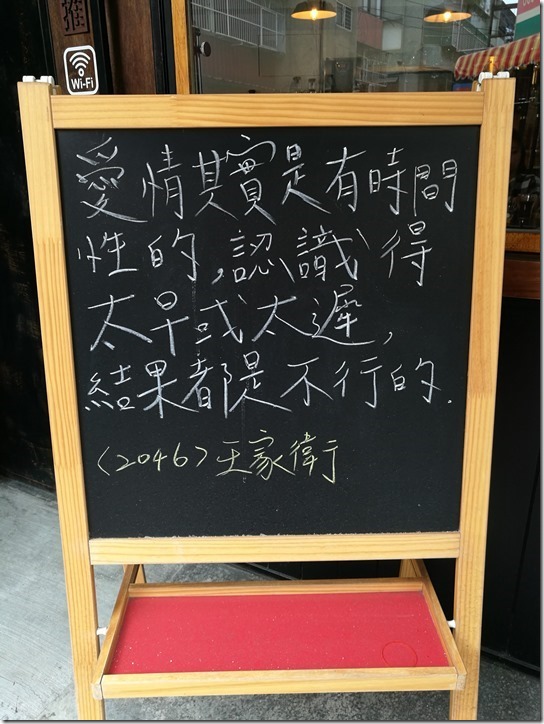 推
Wi-Fi
愛情其實是有時間
性的,認識得
太早或太遲,
結果都是不行的.
〈2046〉王家衛